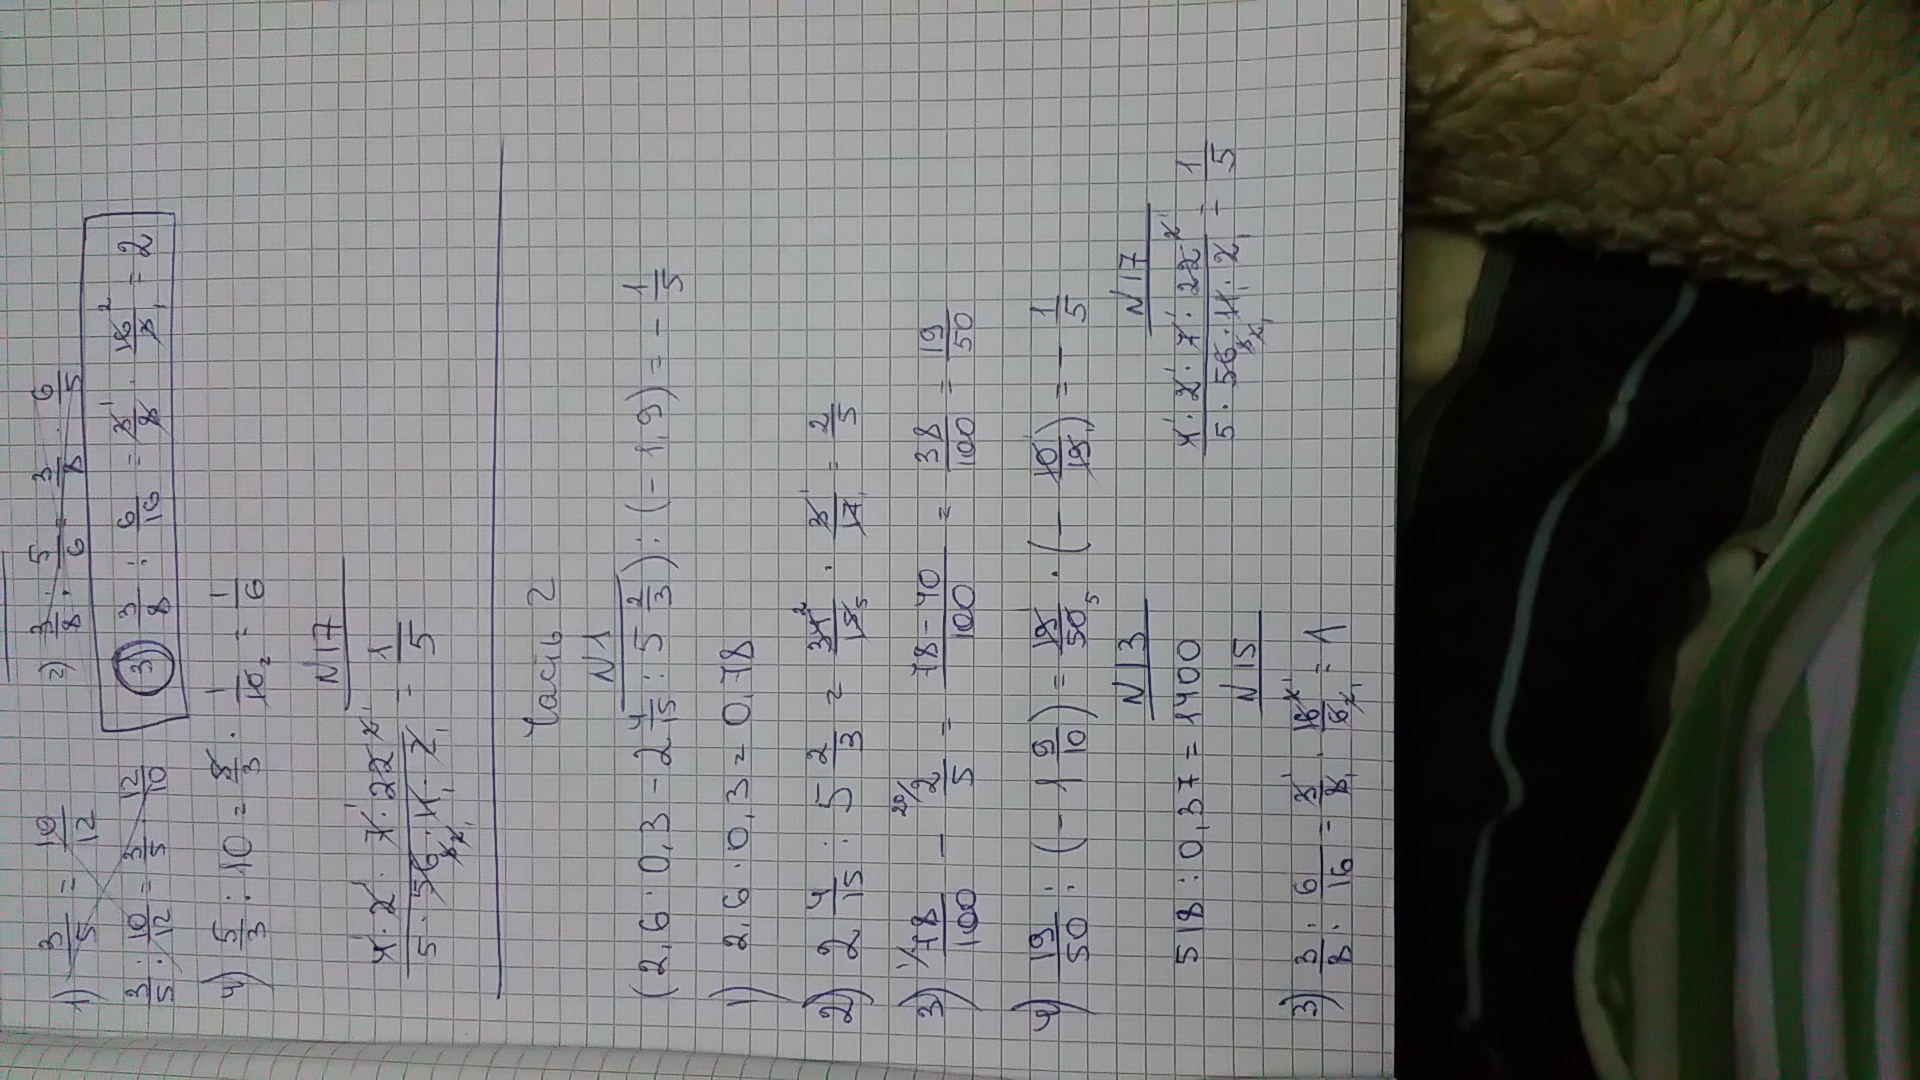 1) 3/5 = 10/12
3/5 : 10/12 = 3/5 · 12/10
2) 3/8 : 5/6 = 3/8 · 6/5
3) 3/8 : 6/16 = 3/8 · 16/3 = 2
4) 5/3 : 10 = 5/3 · 1/10 = 1/6
N17
4·2·7·22/5·56·11·2 = 1/5
Часть 2
N1
(2,6 · 0,3 - 2 4/15 : 5 2/3) : (-1,9) = - 1/5
1) 2,6 · 0,3 = 0,78
2) 2 4/15 : 5 2/3 = 34/15 · 3/17 = 2/5
3) 78/100 - 2/5 = 78-40/100 = 38/100 = 19/50
4) 19/50 : (-1 9/10) = 19/50 · (- 10/19) = - 1/5
N13
518 : 0,37 = 1400
N15
3) 3/8 : 6/16 = 3/8 · 16/6 = 1
N17
4·2·7·22/5·56·11·2 = 1/5